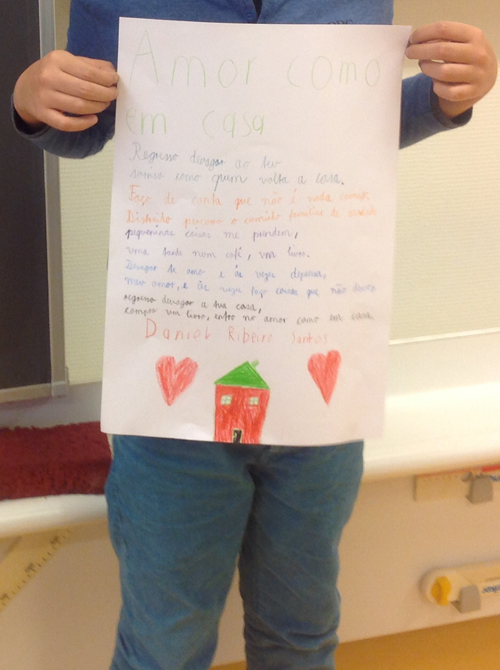 Amor como
em casa
Regresso devagar ao teu
sorriso como quem volta a casa.
Faço de conta que não é nada comigo.
Distraído percorro o caminho familiar da saudade
pequeninas coisas me prendem,
uma tarde num café, um livro.
Devagar te amo e às vezes depressa,
meu amor, e às vezes faço coisas que não devo,
regresso devagar a tua casa,
compro um livro, entro no amor como em casa.
Daniel Ribeiro Santos